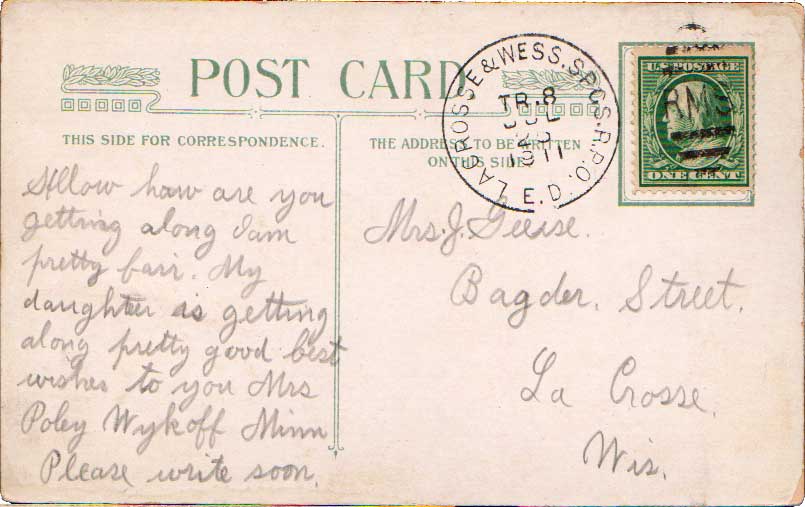 POST CARD
THIS SIDE FOR CORRESPONDENCE.
THE ADDRESS TO BE WRITTEN
ON THIS SIDE
LA CROSSE & WESS. SPGS. R.P.O.
TR. 8
JUL
1911
E.D.
U.S. POSTAGE
RMS
ONE CENT
Hllow how are you
getting along I am
pretty fair. My
daughter is getting
along pretty good best
wishes to you Mrs
Poley Wykoff Minn
Please write soon.
Mrs. J. Geise.
Bagder. Street.
La Crosse.
Wis.